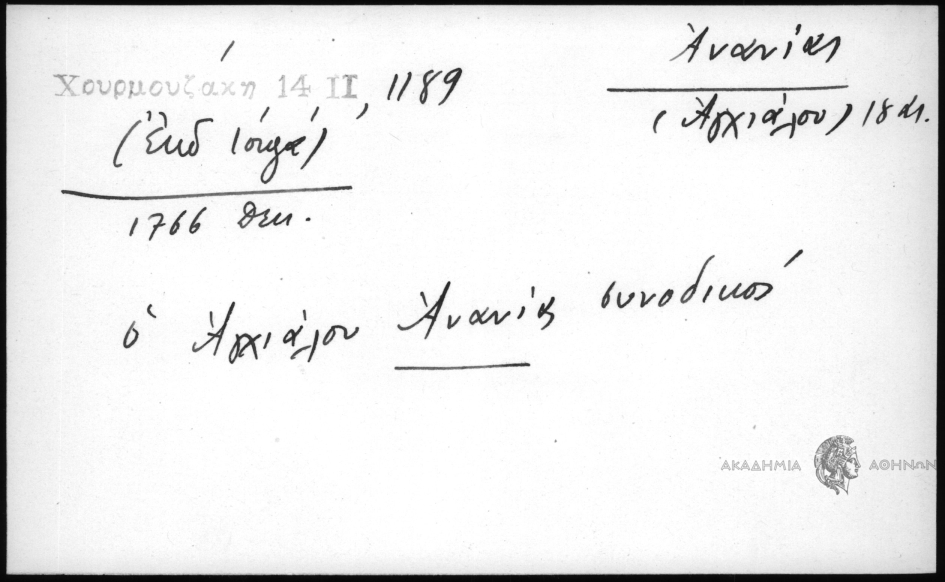 Ἀνανίας
Χουρμουζάκη 14 II, 1189
(Ἀγχιάλου) 18 αι.
(Ἐκδ
1766 Δεκ.
ὁ Ἀγχιάλου Ἀνανίας συνοδικός
ΑΚΑΔΗΜΙΑ ΑΘΗΝΩΝ